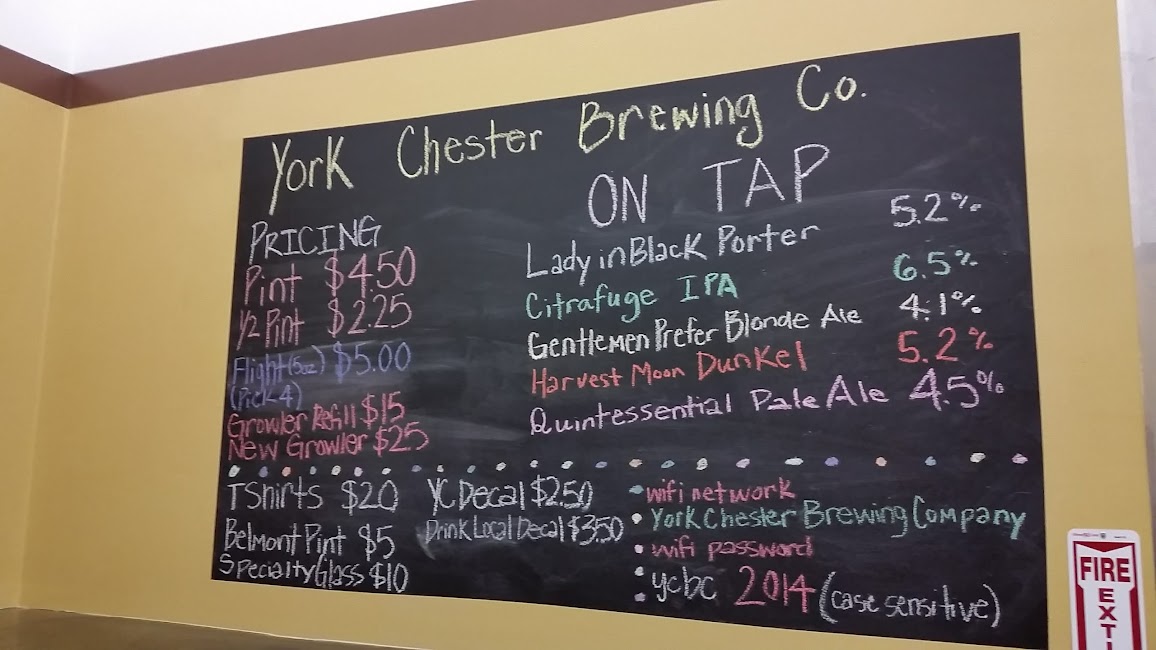 York Chester Brewing Co.
PRICING
Pint $4.50
1/2 Pint $2.25
Flight (5oz) $5.00
(Pick 4)
Growler Refill $15
New Growler $25
ON TAP
Lady in Black Porter 5.2%
Citrafuge IPA 6.5%
Gentlemen Prefer Blonde Ale 4.1%
Harvest Moon Dunkel 5.2%
Quintessential Pale Ale 4.5%
T Shirts $20
Belmont Pint $5
Specialty Glass $10
YC Decal $2.50
Drink Local Decal $3.50
wifi network
York Chester Brewing Company
wifi password
ycbc 2014 (case sensitive)
FIRE
EXTI